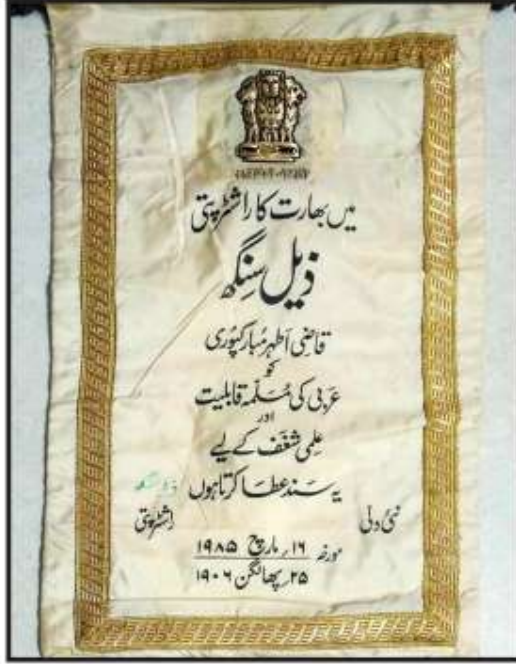 میں بھارت کا راشٹرپتی
ذیل سنگھ
قاضی اطہر مبارکپوری
کو
عربی کی مسلّمہ قابلیت
اور
علمی شغف کے لیے
یہ سند عطا کرتا ہوں
نئی دلی
راشٹرپتی
مورخہ ۱۶ مارچ ۱۹۸۵
۲۵ پھالگن ۱۹۰۶